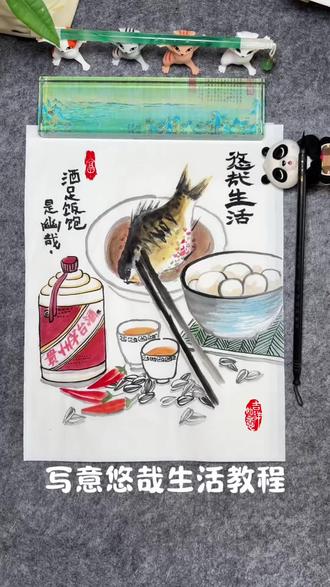 悠哉生活
酒足饭饱
是幽哉.
贵州茅台酒
写意悠哉生活教程